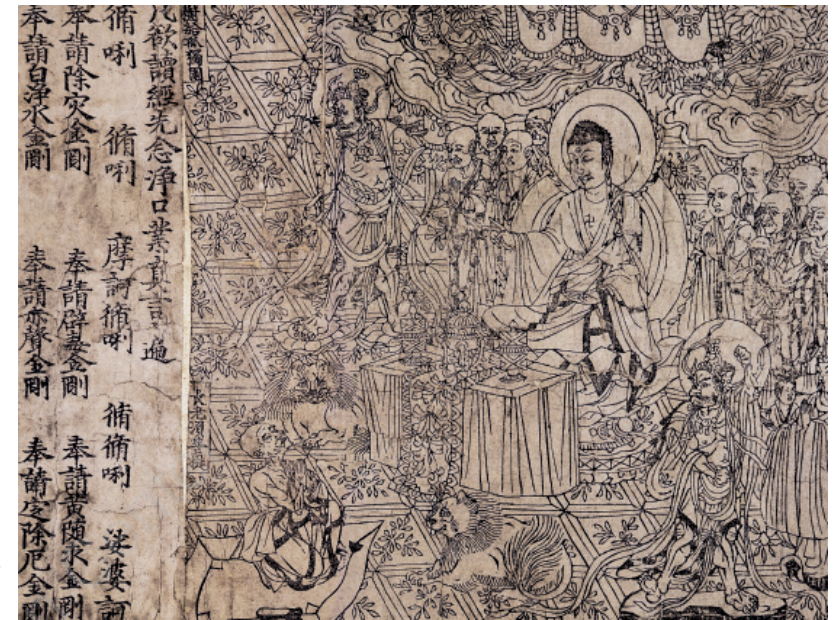 樹給孤獨園
長老須菩提
凡欲讀經先念淨口業真言一遍
脩唎 脩唎 摩訶脩唎 脩脩唎 娑婆訶
奉請除灾金剛 奉請辟毒金剛 奉請黃隨求金剛
奉請白淨水金剛 奉請赤聲金剛 奉請定除厄金剛